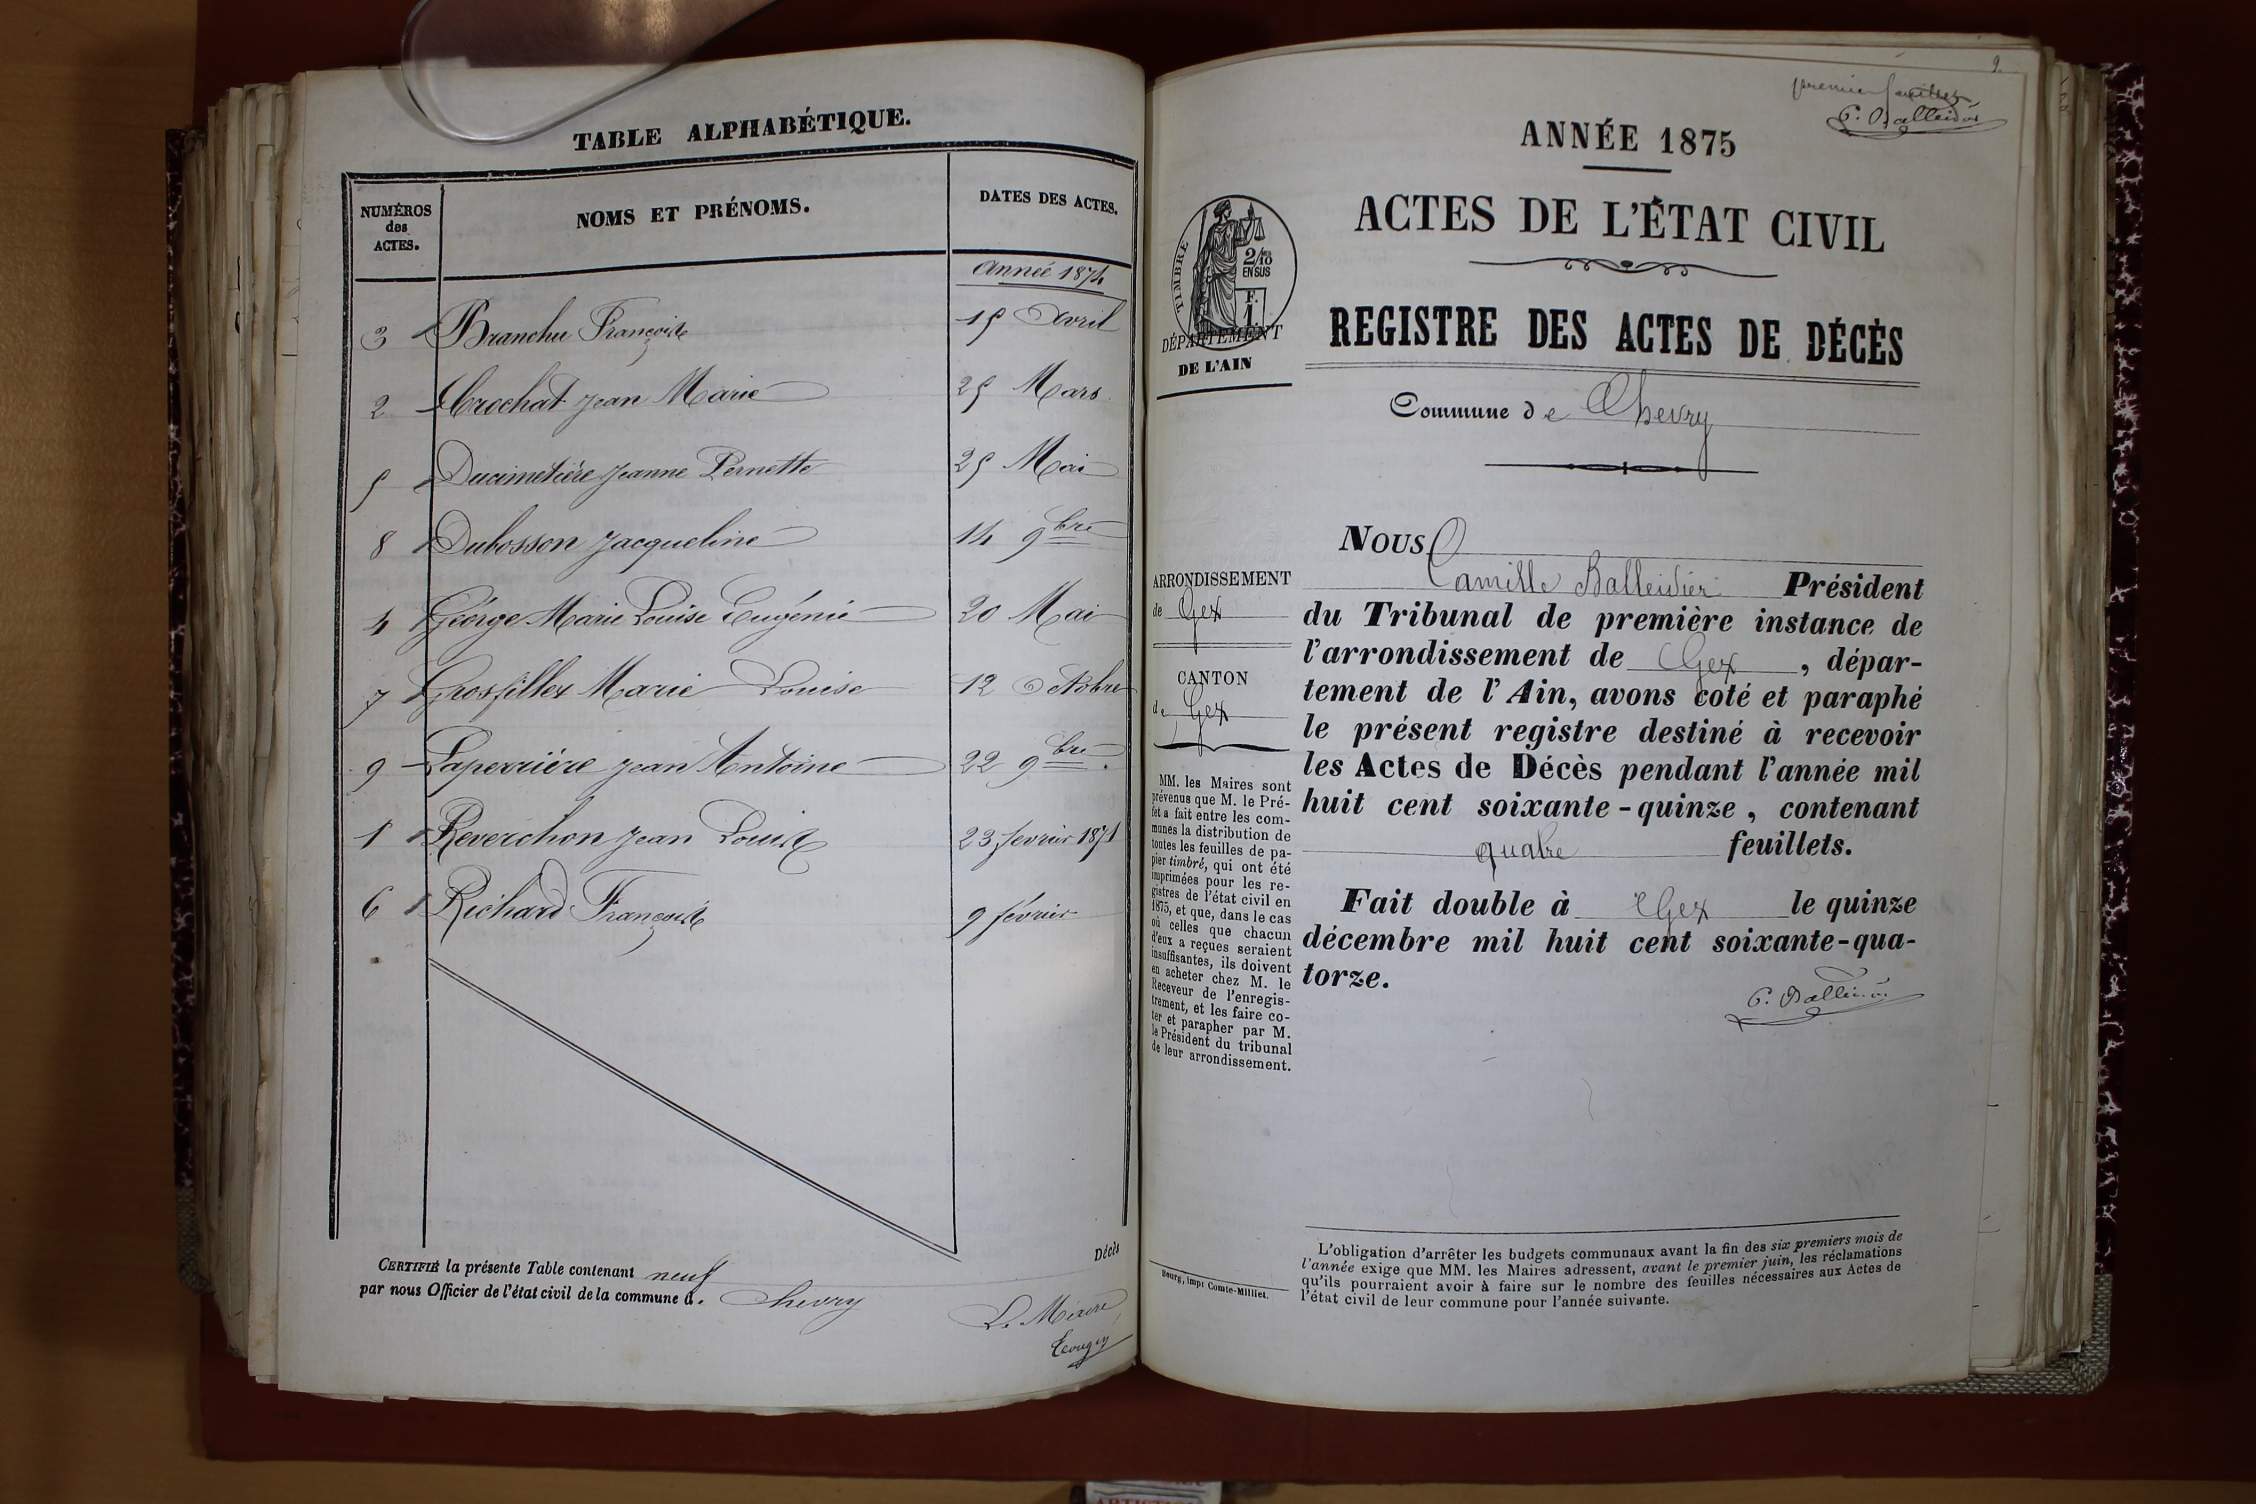 TABLE ALPHABÉTIQUE.
NUMÉROS des ACTES. NOMS ET PRÉNOMS. DATES DES ACTES.
Année 1874
3 Branchu François 15 Avril
2 Crochat Jean Marie 25 Mars
5 Ducimetière Jeanne Pernette 25 Mai
8 Dubosson Jacqueline 14 9bre
4 Géorge Marie Louise Eugénie 20 Mai
7 Grosfillex Marie Louise 12 Octobre
9 Laperrière Jean Antoine 22 9bre
1 Reverchon Jean Louis 23 février 1874
6 Richard François 9 février
Décès
CERTIFIÉ la présente Table contenant neuf
par nous Officier de l'état civil de la commune d. Chevry
Le Maire
2
premier feuillet
C. Balleidier
ANNÉE 1875
ACTES DE L'ÉTAT CIVIL
TIMBRE
2/10
EN SUS
F.
1
DÉPARTEMENT
DE L'AIN
REGISTRE DES ACTES DE DÉCÈS
Commune de Chevry
ARRONDISSEMENT
de Gex
CANTON
de Gex
MM. les Maires sont
prévenus que M. le Pré-
fet a fait entre les com-
munes la distribution de
toutes les feuilles de pa-
pier timbré, qui ont été
imprimées pour les re-
gistres de l'état civil en
1875, et que, dans le cas
où celles que chacun
d'eux a reçues seraient
insuffisantes, ils doivent
en acheter chez M. le
Receveur de l'enregis-
trement, et les faire co-
ter et parapher par M.
le Président du tribunal
de leur arrondissement.
Bourg, impr Comte-Milliet.
NOUS
Camille Balleidier Président
du Tribunal de première instance de
l'arrondissement de Gex, dépar-
tement de l'Ain, avons coté et paraphé
le présent registre destiné à recevoir
les Actes de Décès pendant l'année mil
huit cent soixante-quinze, contenant
quatre feuillets.
Fait double à Gex le quinze
décembre mil huit cent soixante-qua-
torze.
C. Balleidier
L'obligation d'arrêter les budgets communaux avant la fin des six premiers mois de
l'année exige que MM. les Maires adressent, avant le premier juin, les réclamations
qu'ils pourraient avoir à faire sur le nombre des feuilles nécessaires aux Actes de
l'état civil de leur commune pour l'année suivante.